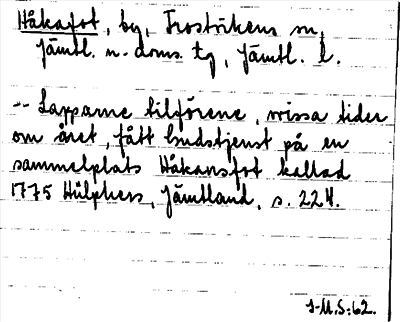 Håkafot, by, Frostvikens sn,
Jämtl. n. doms. tg, Jämtl. l.
-- Lapparne tilförene, wissa tider
om året, fått Gudstjenst på en
sammelplats Håkansfot kallad
1775 Hülphers, Jämtland, s. 224.
J-M.S:62.